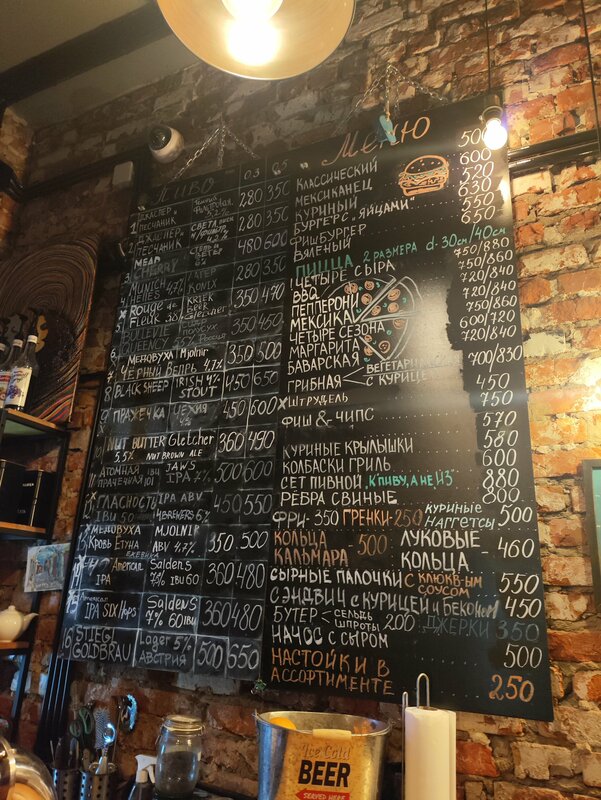 Пиво 0.3 0.5
1 "Джаспер" Песчаник 280 350
2 "Джаспер" Песчаник 280 350
3 MEAD 480 600
4 MUNICH HELLES 4,7% 280 350
5 Rouge de Fleur KRIEK BEER 350 470
350 450
МЕДОВУХА Mjolnir 350 500
7 ЧЕРНЫЙ ВЕПРЬ 4,7%
8 BLACK SHEEP IRISH 4% STOUT 450 650
9 ПРАЖЕЧКА ЧЕХИЯ 450 600
10 NUT BUTTER Gletcher 360 490
5,5% NUT BROWN ALE
11 АТОМНАЯ ПРАЧЕЧНАЯ JAWS IPA 7% 500 600
ГЛАСНОСТЬ IPA ABV 450 550
IBU 50 4BREWERS 6%
МЕДОВУХА MJOLNIR 350 500
Кровь Етуна ABV 4.7%
ЕЖЕВИКА
14 American IPA Saldens 7% IBU 60 360 480
15 American IPA SIX Hops Saldens 7% 60 IBU 360 480
16 STIEGL GOLDBRAU Lager 5% АВСТРИЯ 500 650
Меню
КЛАССИЧЕСКИЙ 500
МЕКСИКАНЕЦ 600
КУРИНЫЙ 520
БУРГЕР С "ЯЙЦАМИ" 630
ФИШБУРГЕР 550
ВЯЛЕНЫЙ 650
ПИЦЦА 2 РАЗМЕРА d-30см/40см
!ЧЕТЫРЕ СЫРА 750/880
BBQ 750/860
ПЕППЕРОНИ 720/840
МЕКСИКА 720/840
ЧЕТЫРЕ СЕЗОНА 750/860
МАРГАРИТА 600/740
БАВАРСКАЯ 720/840
ГРИБНАЯ С КУРИЦЕЙ 700/830
ШТРУДЕЛЬ 450
ФИШ & ЧИПС 750
КУРИНЫЕ КРЫЛЫШКИ 570
КОЛБАСКИ ГРИЛЬ 580
СЕТ ПИВНОЙ, К ПИВУ, А НЕ ИЗ 600
РЁБРА СВИНЫЕ 880
800
ФРИ-350 ГРЕНКИ-250 КУРИНЫЕ НАГГЕТСЫ 500
КОЛЬЦА КАЛЬМАРА - 500 ЛУКОВЫЕ КОЛЬЦА - 460
СЫРНЫЕ ПАЛОЧКИ С КЛЮКВ-ЫМ СОУСОМ 550
СЭНДВИЧ С КУРИЦЕЙ И БЕКОНОМ 450
БУТЕР СЕЛЬДЬ ШПРОТЫ 200 ДЖЕРКИ 350
НАЧОС С СЫРОМ 500
НАСТОЙКИ В АССОРТИМЕНТЕ 250
Ice Cold
BEER
SERVED HERE